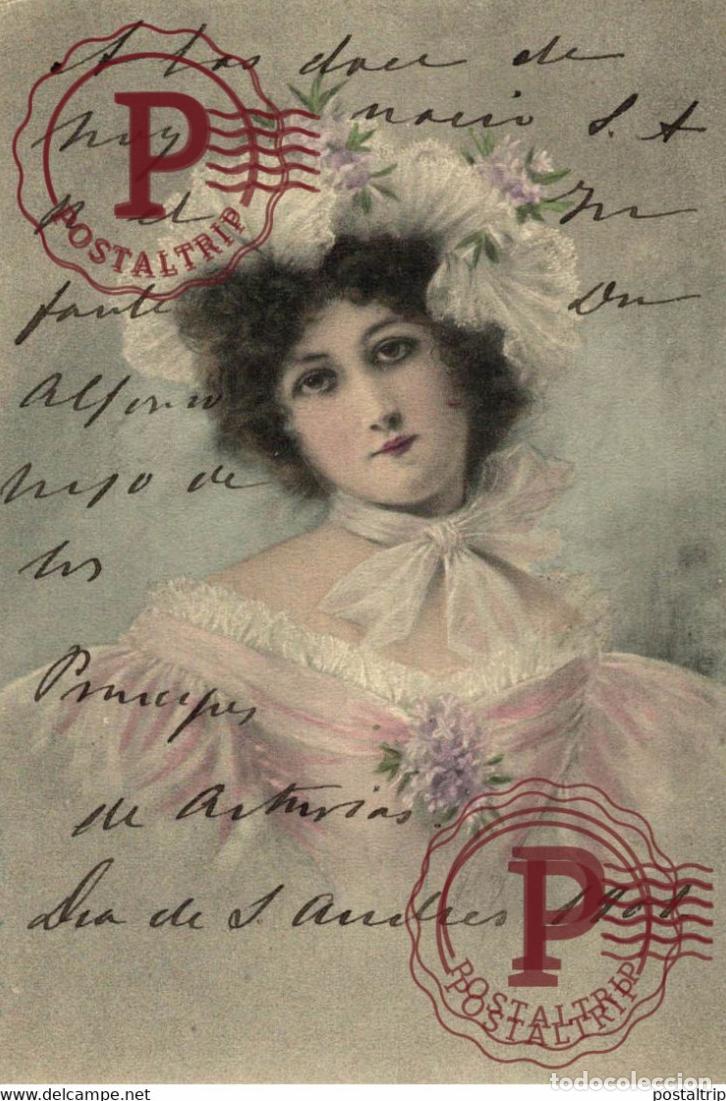 A las doce de
hoy nacio S. A
R el In
fante Dn
Alfonso
hijo de
los
Principes
de Asturias.
Dia de S. Andres 1901.
P
POSTALTRIP
P
POSTALTRIP
POSTALTRIP
todocoleccion
www.delcampe.net
postaltrip